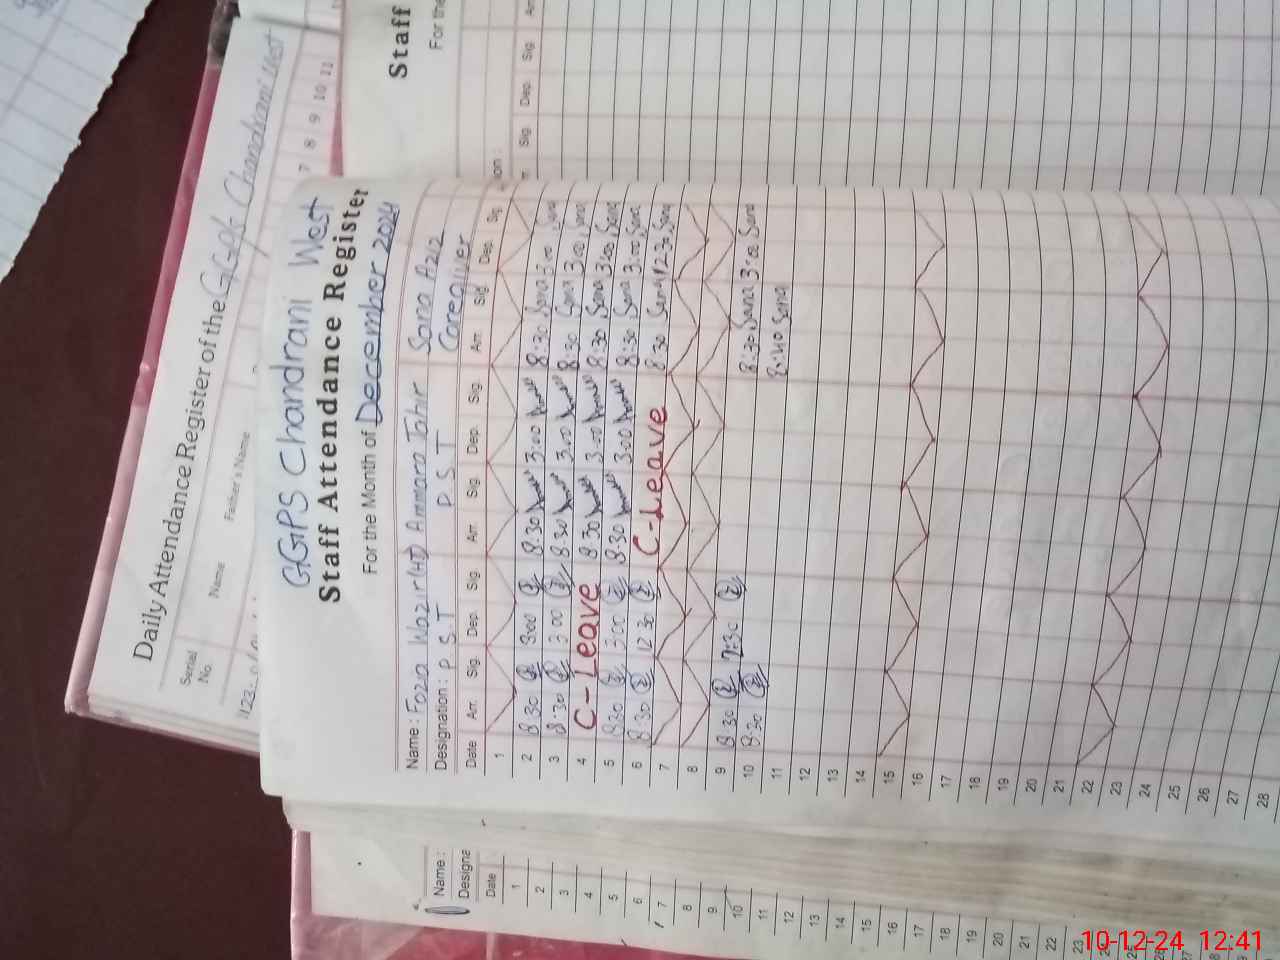 Daily Attendance Register of the GGPS Chandrani West
Serial No. Name Father's Name 7 8 9 10 11
GGPS Chandrani West
Staff Attendance Register
For the Month of December 2024
Name : Fozia Wazir (HT) Ammara Tahir Sana Aziz
Designation : P.S.T P.S.T Caregiver
Date Arr. Sig. Dep. Sig. Arr. Sig. Dep. Sig. Arr. Sig. Dep. Sig.
1
2 8:30 3:00 8:30 3:00 8:30 Sana 3:00 Sana
3 8:30 3:00 8:30 3:00 8:30 Sana 3:00 Sana
4 C-Leave 8:30 3:00 8:30 Sana 3:00 Sana
5 8:30 3:00 8:30 3:00 8:30 Sana 3:00 Sana
6 8:30 12:30 C-Leave 8:30 Sana 12:30 Sana
7
8
9 8:30 2:30 8:30 Sana 3:00 Sana
10 8:30 8:40 Sana
11
12
13
14
15
16
17
18
19
20
21
22
23
24
25
26
27
28
Staff
For the
Sig. Dep. Sig.
Name :
Designa
Date
1
2
3
4
5
6
7
8
9
10
11
12
13
14
15
16
17
18
19
20
21
22
23
10-12-24 12:41